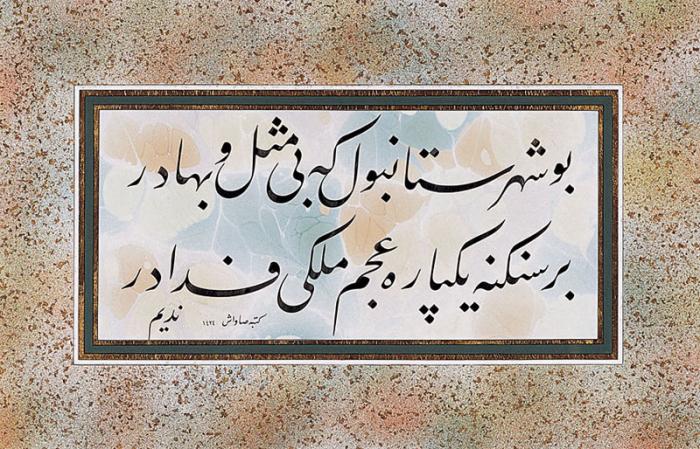 بو شهر ستانبول که بی مثل و بهادر
بر سنکنه یکپاره عجم ملکی فدادر
ندیم
کتبه صاواش ١٤٢٤